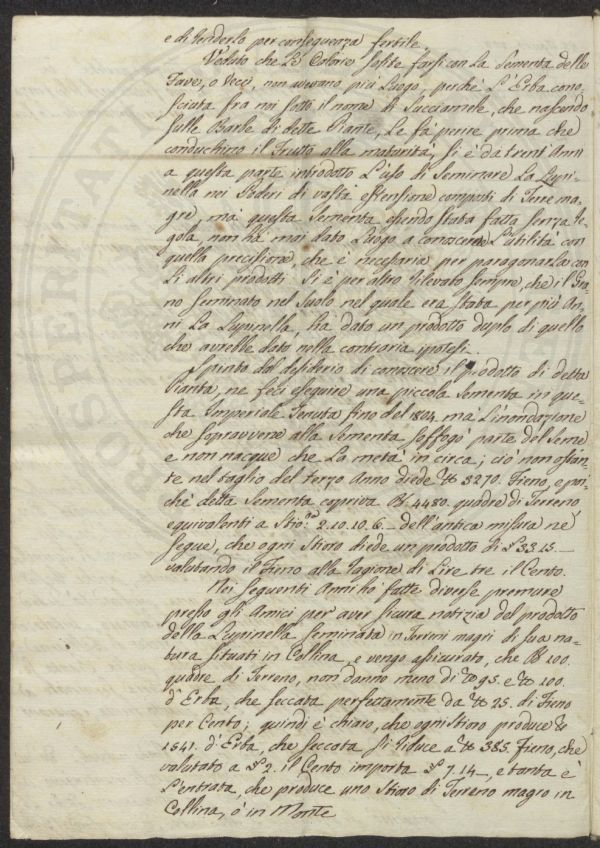 e di renderlo per conseguenza fertile.
Veduto che le Colorie solite farsi con La Sementa delle
Fave, o Vecce, non avevano più Luogo, perchè L'Erba cono-
sciuta fra noi sotto il nome di Succiamele, che nascendo
sulle Barbe di dette Piante, Le fà perire prima che
conduchino il Frutto alla maturità, Si è da trent'Anni
a questa parte introdotto L'uso di Seminare La Lupi-
nella nei Poderi di vasta estensione composti di Terre ma-
gre, mà questa Sementa essendo stata fatta senza re-
gola, non hà mai dato Luogo a conoscerne L'utilità con
quella precisione che è necessaria per paragonarla con
Li altri prodotti. Si è per altro rilevato sempre, che il Gra-
no seminato nel Suolo nel quale era stata per più An-
ni La Lupinella, ha dato un prodotto duplo di quello
che avrebbe dato nella contraria ipotesi.
Spinto dal desiderio di conoscere il prodotto di detta
Pianta, ne feci eseguire una piccola Sementa in que-
sta Imperiale Tenuta fino del mà L'inondazione
che sopravvenne alla Sementa soffogò parte del Seme
e non nacque che La metà in circa; ciò non ostan-
te nel taglio del terzo Anno diede 3270. Fieno, e poi-
chè detta Sementa copriva 4480. quadre di Terreno,
equivalenti a 2.10.10.6. dell'antica misura ne
segue, che ogni Stioro diede un prodotto di 33.15.
valutando il Fieno alla ragione di Lire tre il Cento.
Nei seguenti Anni hò fatte diverse premure
presso gli Amici per aver sicura notizia del prodotto
della Lupinella seminata in Terreni magri di sua na-
tura situati in Collina, e vengo assicurato, che 100.
quadre di Terreno, non danno meno di 95. e 100.
d'Erba, che seccata perfettamente dà 25. di Fieno
per Cento; quindi è chiaro, che ogni Stioro produce
1541. d'Erba, che seccata si riduce a 385. Fieno, che
valutato a 2. il Cento importa 7.14, e tanta è
L'entrata, che produce uno Stioro di Terreno magro in
Collina, ò in Monte